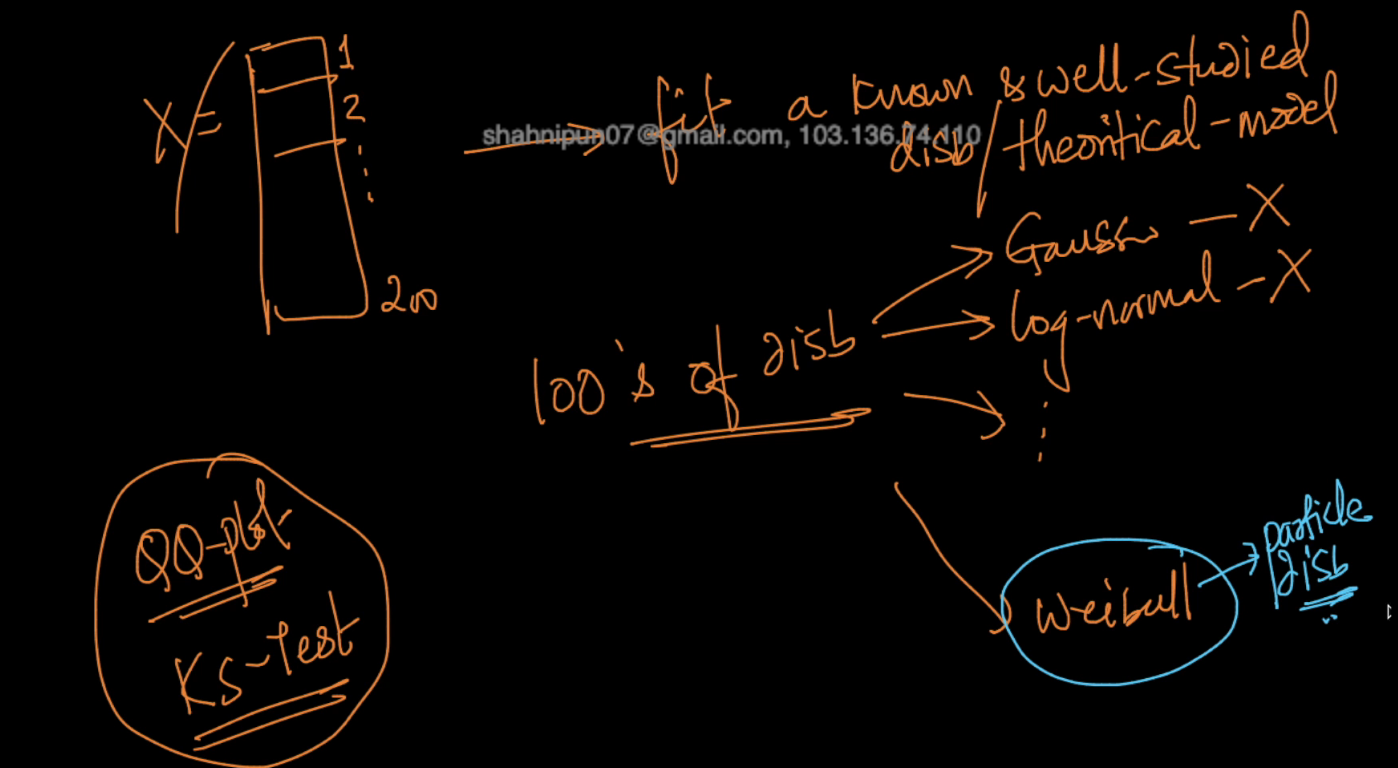 X =
1
2
200
fit a known & well-studied
disb / theoritical-model
shahnipun07@gmail.com, 103.136.74.110
100's of disb
Gaussn — X
log-normal — X
QQ-plot
KS-Test
Weibull
particle
disb